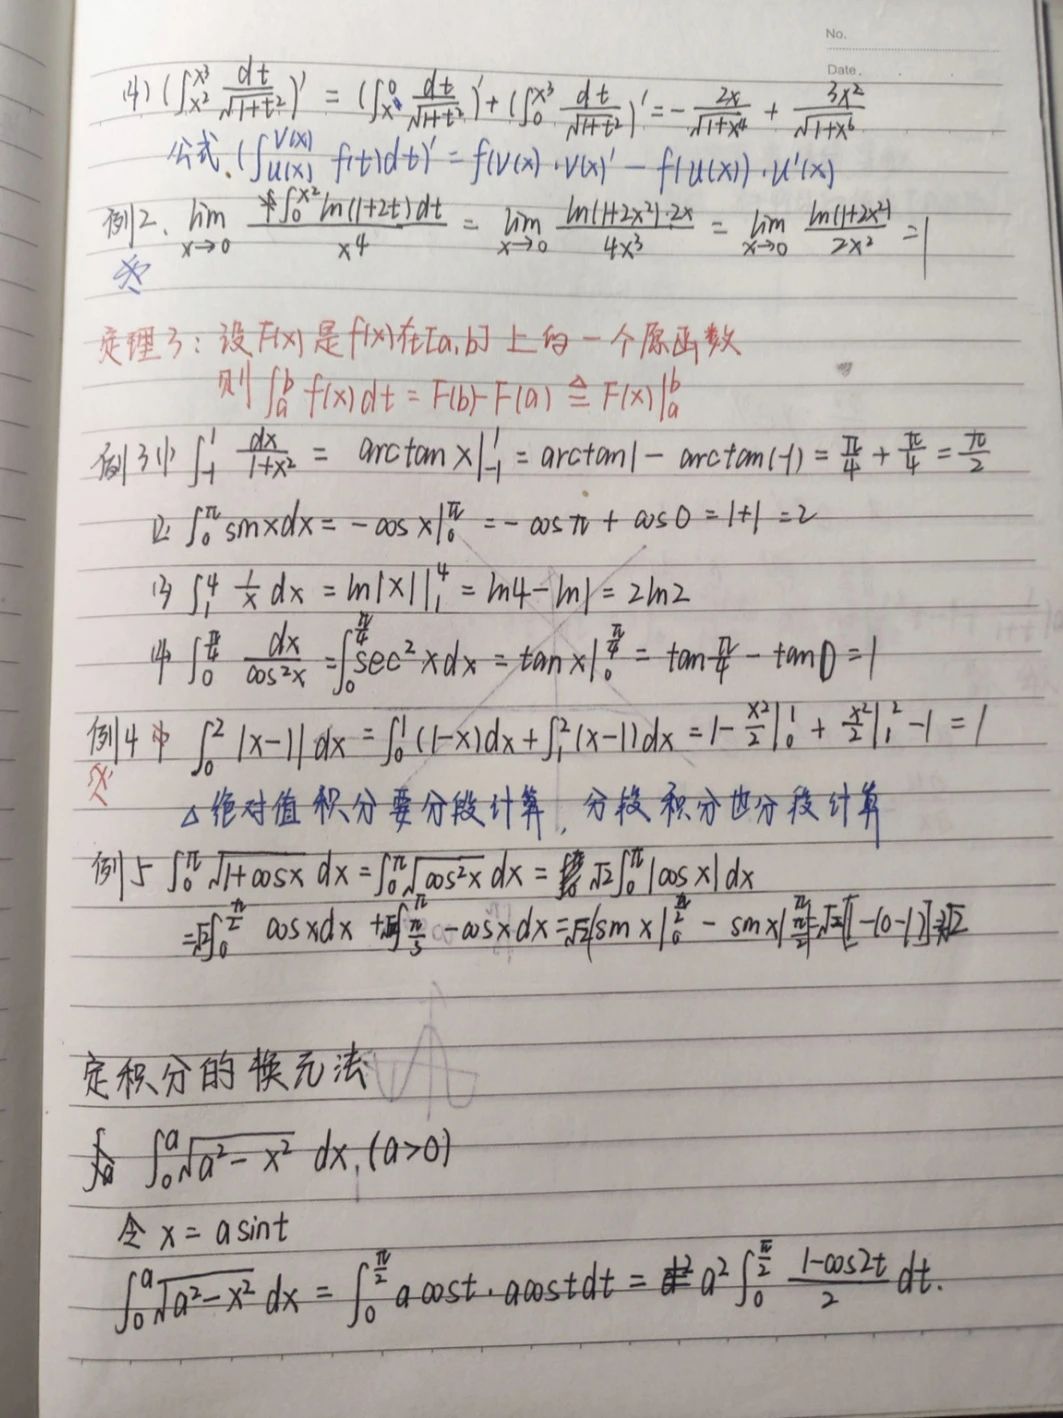 No.
Date.
(4) (∫_{x²}^{x³} dt/√(1+t²))' = (∫_{x²}^{0} dt/√(1+t²))' + (∫_0^{x³} dt/√(1+t²))' = - 2x/√(1+x⁴) + 3x²/√(1+x⁶)
公式. (∫_{u(x)}^{v(x)} f(t)dt)' = f(v(x)·v(x)' - f(u(x))·u'(x)
例2、lim_{x→0} ∫_0^{x²} ln(1+2t)dt / x⁴ = lim_{x→0} ln(1+2x²)·2x / 4x³ = lim_{x→0} ln(1+2x²) / 2x² = 1
定理3：设F(x)是f(x)在[a,b]上的一个原函数
则∫_a^b f(x)dt = F(b)-F(a) ≜ F(x)|_a^b
例3(1) ∫_{-1}^{1} dx/(1+x²) = arctan x|_{-1}^{1} = arctan1 - arctan(-1) = π/4 + π/4 = π/2
(2) ∫_0^π sinxdx = -cos x|_0^π = -cosπ + cos0 = 1+1 = 2
(3) ∫_1^4 1/x dx = ln|x| |_1^4 = ln4-ln1 = 2ln2
(4) ∫_0^{π/4} dx/cos²x = ∫_0^{π/4} sec²xdx = tanx|_0^{π/4} = tan π/4 - tan0 = 1
例4 (1) ∫_0^2 |x-1| dx = ∫_0^1 (1-x)dx + ∫_1^2 (x-1)dx = 1 - x²/2|_0^1 + x²/2|_1^2 - 1 = 1
△绝对值积分要分段计算，分段积分也分段计算
例5 ∫_0^π √(1+cosx) dx = ∫_0^π √(cos²x) dx = √2∫_0^π |cosx|dx
=√2∫_0^{π/2} cosxdx + √2∫_{π/2}^π -cosxdx = √2[sinx|_0^{π/2} - sinx|_{π/2}^π] = √2[1-(0-1)] = 2√2
定积分的换元法
∫_0^a √(a²-x²) dx. (a>0)
令x=asint
∫_0^a √(a²-x²) dx = ∫_0^{π/2} acost·acostdt = a²∫_0^{π/2} (1-cos2t)/2 dt.